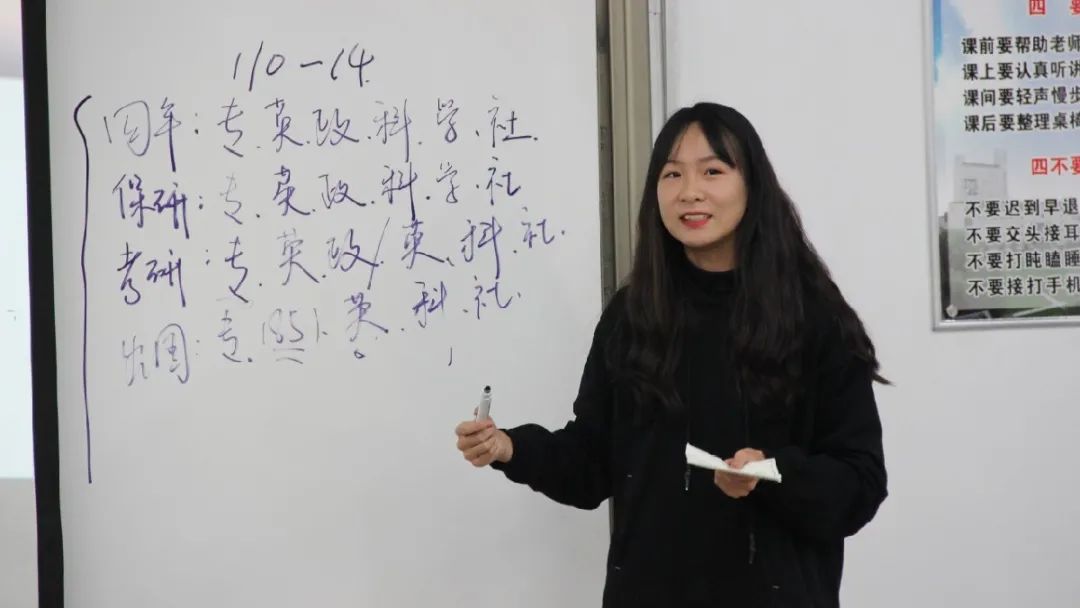 110-14
年:专.英.政.科.学.社.
保研:专.英.政.科.学.社
考研:专.英.政/英.科.社.
出国:专.(85).英.科.社.
四 要
课前要帮助老师
课上要认真听讲
课间要轻声慢步
课后要整理桌椅
四不要
不要迟到早退
不要交头接耳
不要打盹瞌睡
不要接打手机